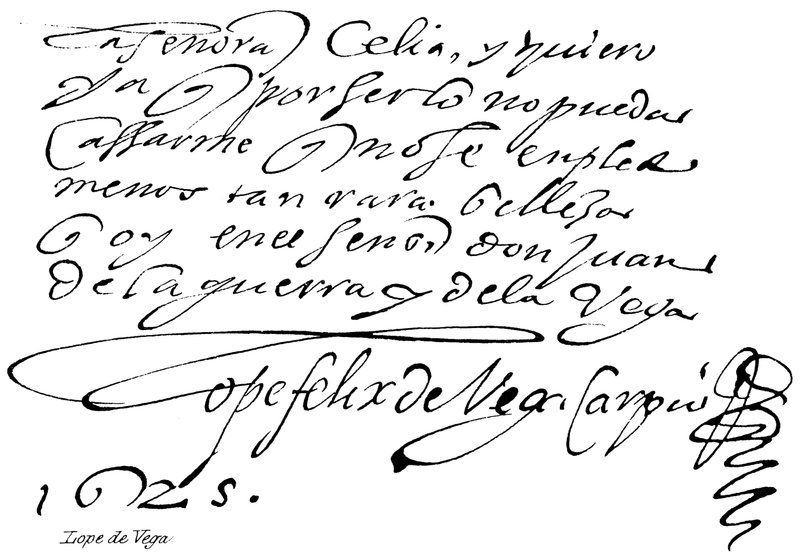 la señora Celia, y quiero
ya q por serlo no pueda
Cassarme q no se enplee
menos tan rara belleza
q oy en el señor don Juan
de la guerra y de la Vega
Lope felix de Vega Carpio
1625.
Lope de Vega